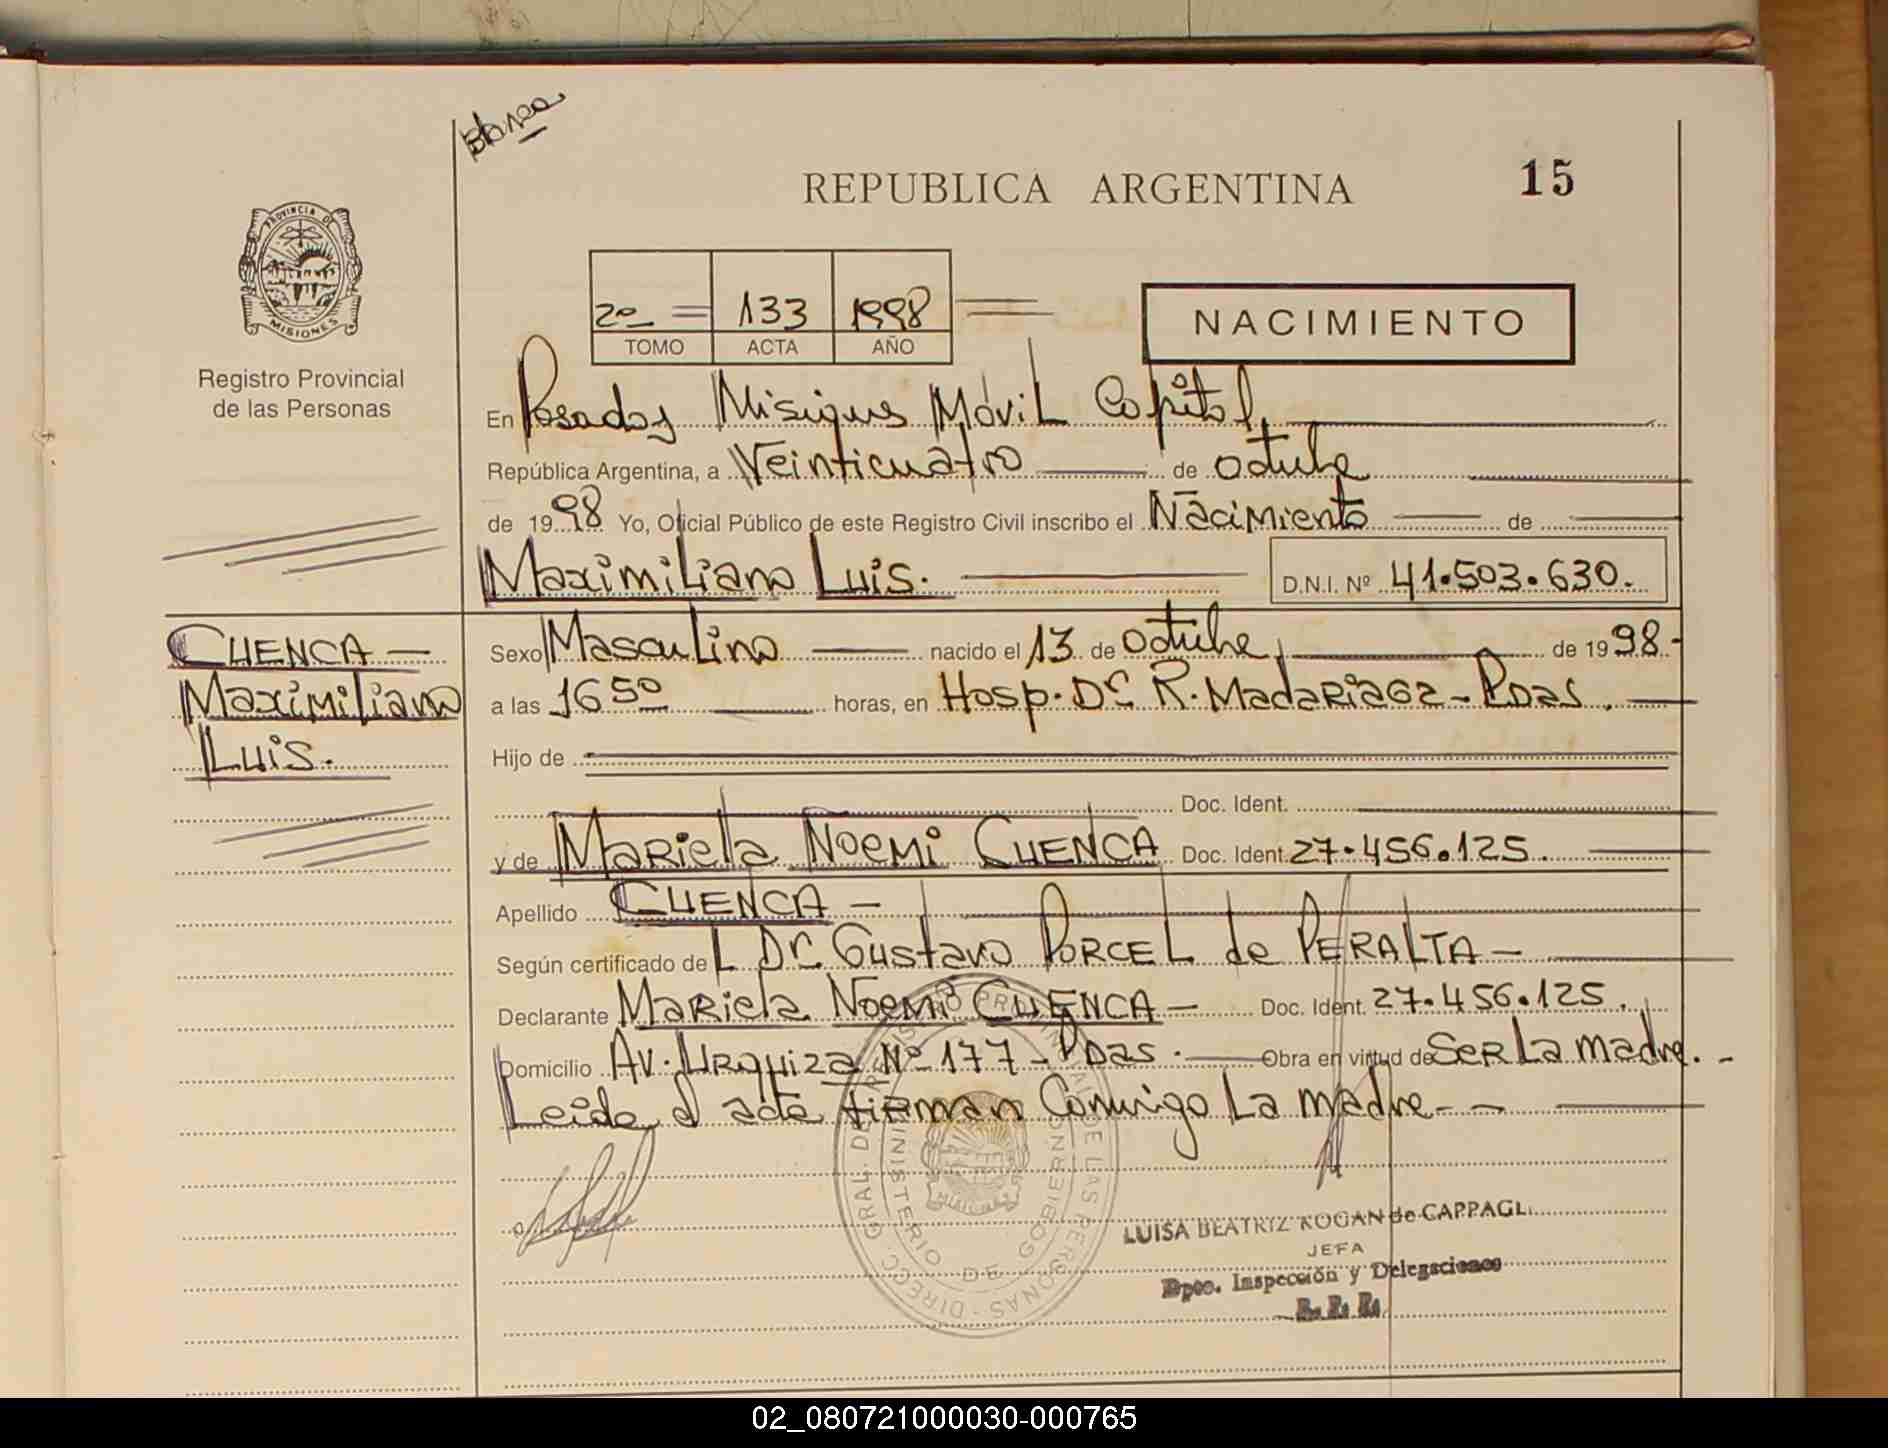 REPUBLICA ARGENTINA
15
PROVINCIA DE
MISIONES
Registro Provincial
de las Personas
2º 133 1998
TOMO ACTA AÑO
NACIMIENTO
En Posadas Misiones Móvil Capital
República Argentina, a Veinticuatro de octubre
de 1998 Yo, Oficial Público de este Registro Civil inscribo el Nacimiento de
Maximiliano Luis. D.N.I. Nº 41.503.630.
CUENCA -
Maximiliano
Luis.
Sexo Masculino nacido el 13 de octubre de 1998-
a las 16 50 horas, en Hosp. Dr. R. Madariaga - Pdas.
Hijo de
Doc. Ident.
y de Mariela Noemi CUENCA Doc. Ident. 27.456.125.
Apellido CUENCA -
Según certificado de L Dr. Gustavo PORCEL de PERALTA -
Declarante Mariela Noemi CUENCA - Doc. Ident. 27.456.125.
Domicilio Av. Urquiza Nº 177 - Pdas. Obra en virtud de Ser La madre. -
Leida el acta firman Conmigo La madre - -
DIRECC. GRAL. DE REGISTRO PROVINCIAL DE LAS PERSONAS -
MINISTERIO DE GOBIERNO
MISIONES
LUISA BEATRIZ KOGAN de CAPPAGLI
JEFA
Dpto. Inspección y Delegaciones
R. P. P.
02_080721000030-000765